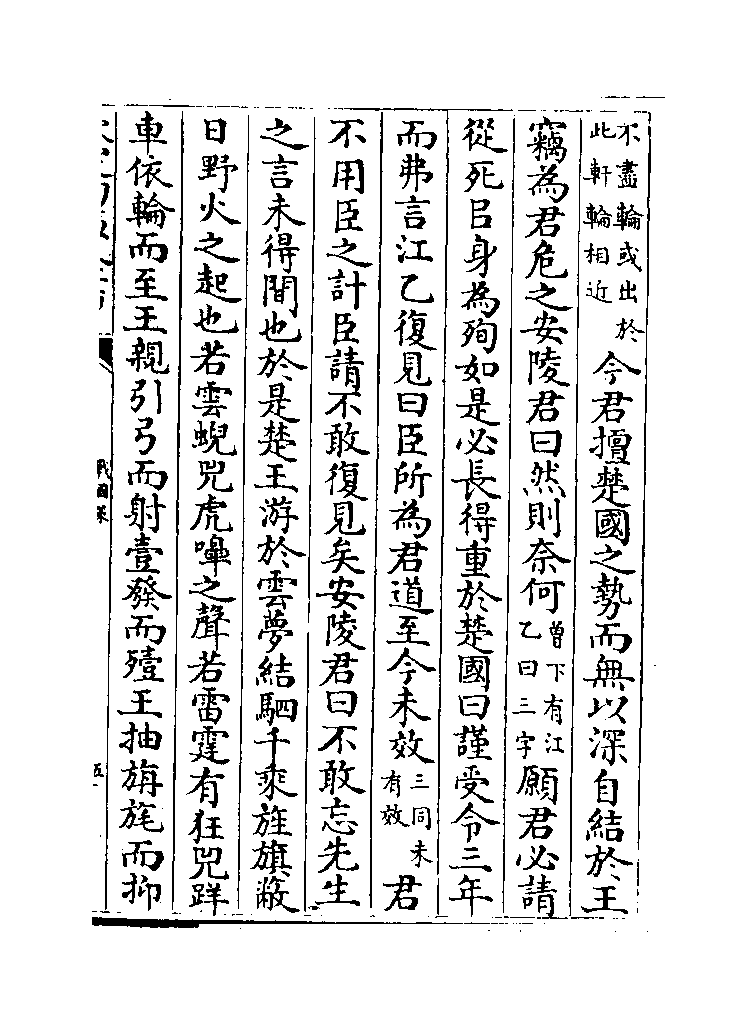 不盡輪或出於
此軒輪相近
今君擅楚國之勢而無以深自結於王
竊為君危之安陵君曰然則奈何
曽下有江
乙曰三字
願君必請
從死㠯身為殉如是必長得重於楚國曰謹受令三年
而弗言江乙復見曰臣所為君道至今未效
三同未
有效
君
不用臣之計臣請不敢復見矣安陵君曰不敢忘先生
之言未得間也於是楚王游於雲夢結駟千乘旌旗蔽
日野火之起也若雲蜺兕虎嘷之聲若雷霆有狂兕
車依輪而至王親引弓而射壹發而殪王抽旃旄而抑
戰國策
五